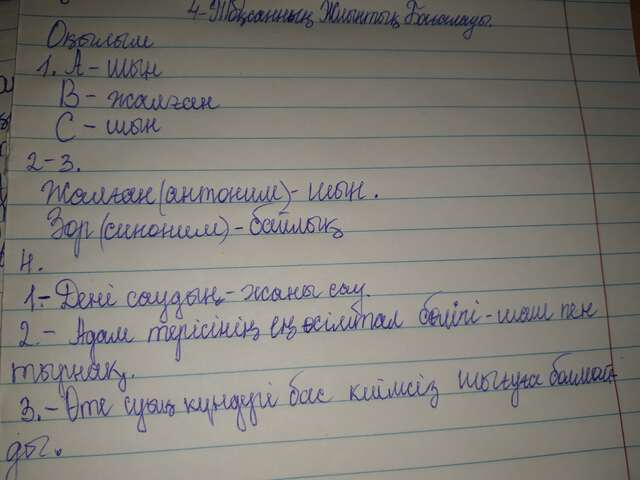 4-Тоқсанның Жиынтық Бағалауы.
Оқылым
1. А - шын
В - жалған
С - шын
2-3.
Жалған (антоним) - шын.
Зор (синоним) - байлық
4.
1. - Дені саудың - жаны сау.
2. - Адам терісінің ең өсімтал бөлігі - шаш пен
тырнақ.
3. - Өте суық күндері бас киімсіз шығуға болмай-
ды.